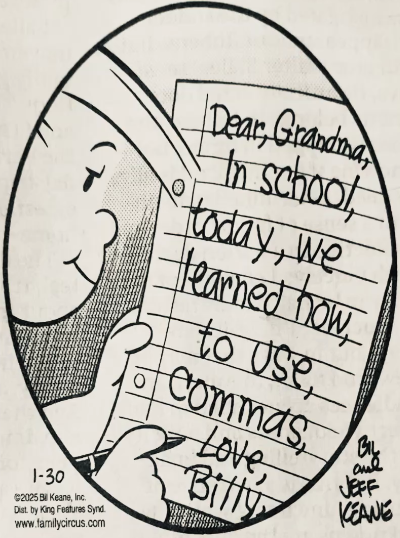 Dear, Grandma,
In school,
today, we
learned how,
to use,
Commas,
Love,
Billy,
1-30
©2025 Bil Keane, Inc.
Dist. by King Features Synd.
www.familycircus.com
BIL
and
JEFF
KEANE